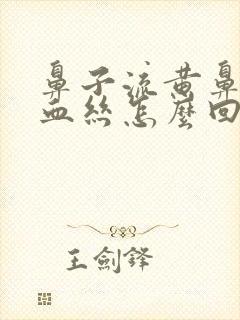 鼻子流黄鼻
血丝怎麼回
王劍鋒